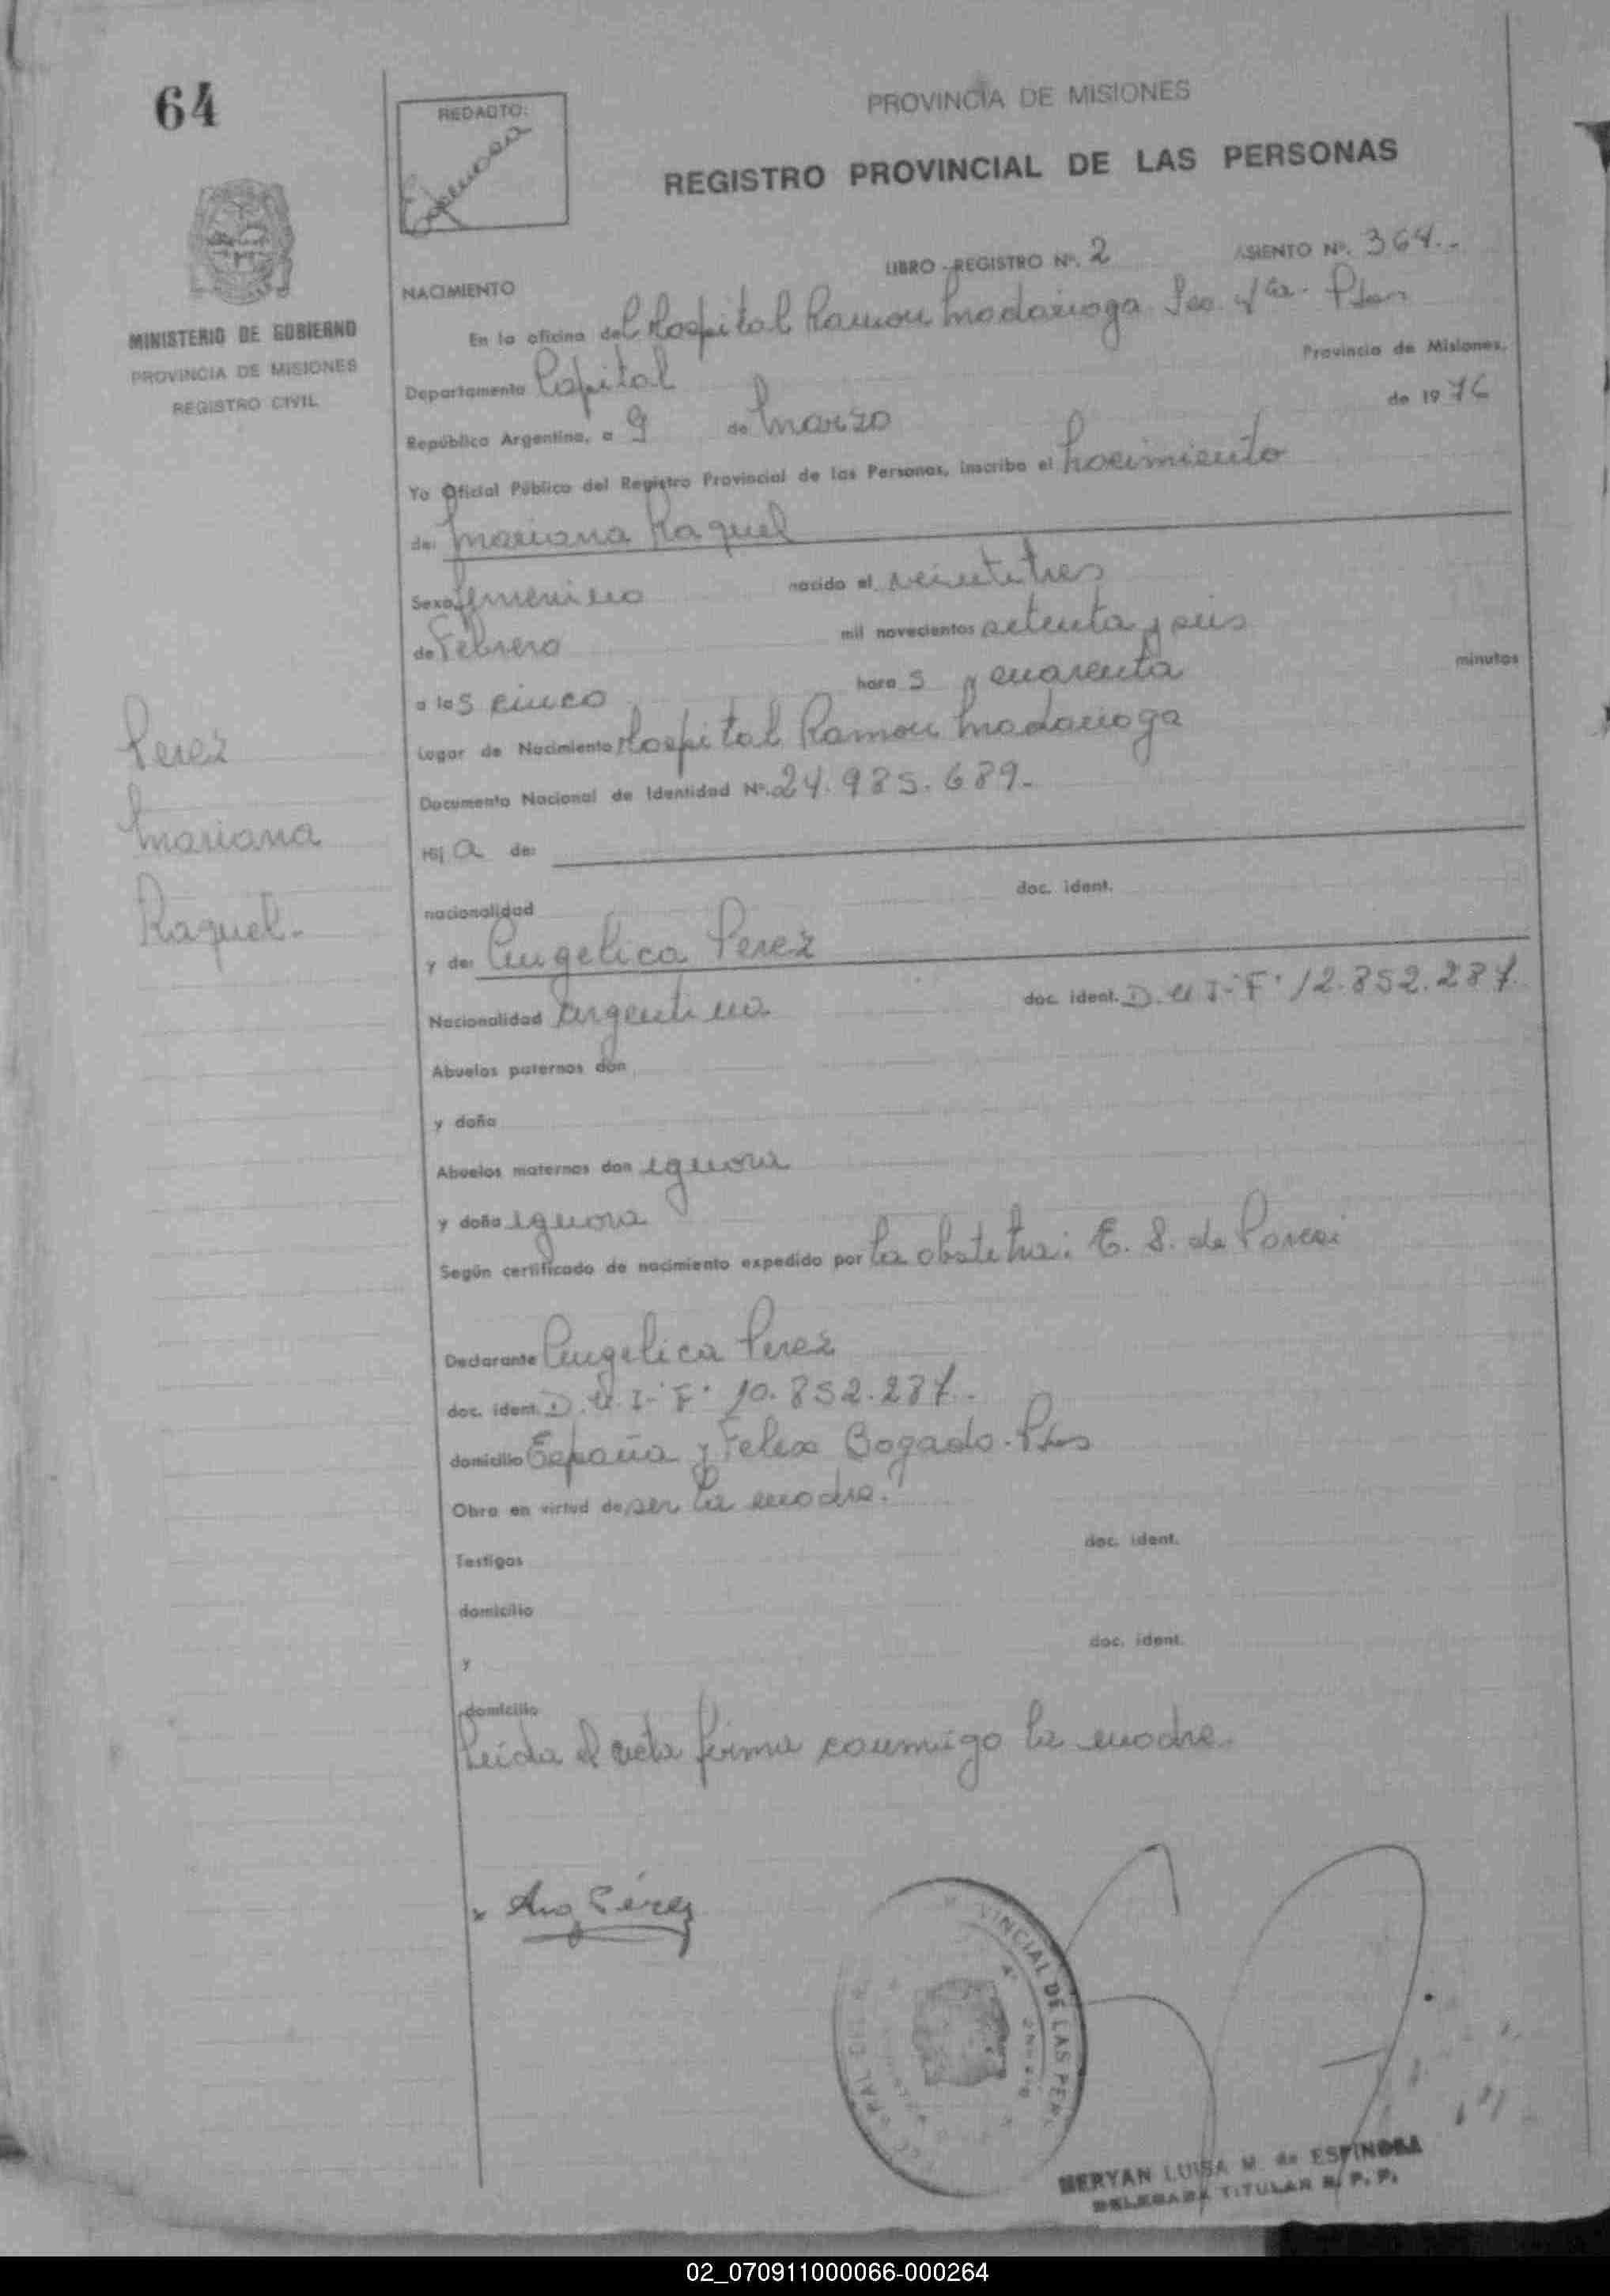 64
REDACTO:
PROVINCIA DE MISIONES
REGISTRO PROVINCIAL DE LAS PERSONAS
MINISTERIO DE GOBIERNO
PROVINCIA DE MISIONES
REGISTRO CIVIL
LIBRO - REGISTRO Nº. 2 ASIENTO Nº. 364.-
NACIMIENTO
En la oficina del Hospital Ramon Madariaga Sec. 4ta. Pdas
Departamento Capital Provincia de Misiones,
República Argentina, a 9 de Marzo de 1976
Yo Oficial Público del Registro Provincial de las Personas, inscribo el Nacimiento
de: Mariana Raquel
Sexo femenino nacido el veintitres
de Febrero mil novecientos setenta y seis
a las cinco horas y cuarenta minutos
Lugar de Nacimiento Hospital Ramon Madariaga
Documento Nacional de Identidad Nº. 24.985.689.-
Perez
Mariana
Raquel.-
Hija de:
nacionalidad doc. ident.
y de: Angelica Perez
Nacionalidad Argentina doc. ident. D.U.I-F. 12.852.287.
Abuelos paternos don
y doña
Abuelos maternos don ignora
y doña ignora
Según certificado de nacimiento expedido por la obstetra: E. S. de
Declarante Angelica Perez
doc. ident. D.U.I-F. 10.852.287.-
domicilio España y Felix Bogado. Pdas
Obra en virtud de ser la madre.
Testigos doc. ident.
domicilio
y doc. ident.
domicilio
Leida el acta firma conmigo la madre.
x Ang Pérez
VINCIAL DE LAS PER
MERYAN LUISA M. de ESPINOSA
DELEGADA TITULAR R. P. P.
02_070911000066-000264